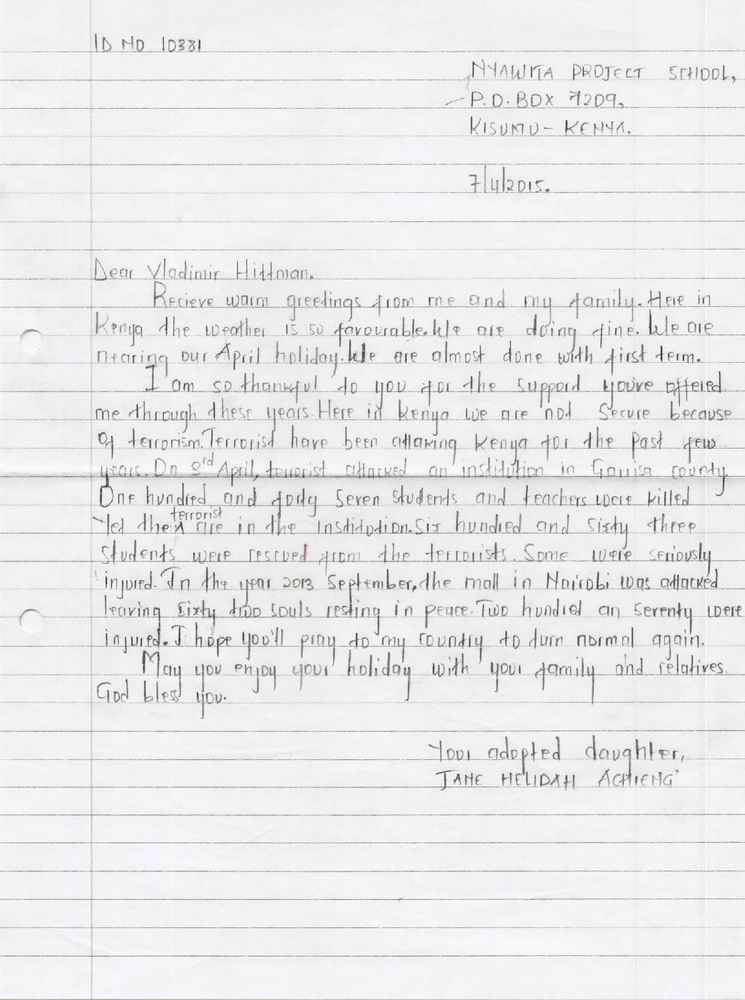 ID NO 10331
NYAWITA PROJECT SCHOOL,
P.O. BOX 7209,
KISUMU - KENYA.
7/4/2015.
Dear Vladimir Hittman.
Recieve warm greetings from me and my family. Here in
Kenya the weather is so favourable. We are doing fine. We are
nearing our April holiday. We are almost done with first term.
I am so thankful to you for the support you've offered
me through these years. Here in Kenya we are not secure because
of terrorism. Terrorist have been attaking Kenya for the past few
years. On April, terrorist attacked an institution in Garrisa county
One hundred and forty seven students and teachers were killed
Yet the terrorist in the institution. Six hundred and sixty three
students were rescued from the terrorists. Some were seriously
injured. In the year 2013 September, the mall in Nairobi was attacked
leaving sixty two souls resting in peace. Two hundred an seventy were
injured. I hope you'll pray to my country to turn normal again.
May you enjoy your holiday with your family and relatives.
God bless you.
Your adopted daughter,
JANE HELIDAH ACHIENG'